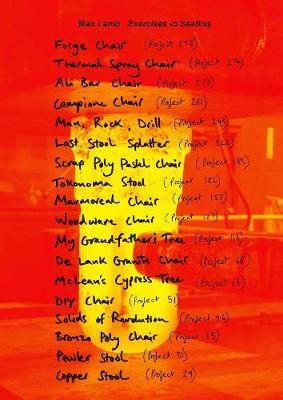 Max Lamb Exercises in Seating
Forge Chair (Project 298)
Thermal Spray Chair (Project 274)
Ali Bar Chair (Project 273)
Campione Chair (Project 261)
Man, Rock, Drill (Project 248)
Last Stool Splatter (Project 222)
Scrap Poly Pastel Chair (Project 189)
Tokonoma Stool (Project 182)
Marmoreal Chair (Project 157)
Woodware Chair (Project 127)
My Grandfather's Tree (Project 113)
De Lank Granite Chair (Project 68)
McLean's Cypress Tree (Project 63)
DIY Chair (Project 51)
Solids of Revolution (Project 46)
Bronze Poly Chair (Project 35)
Pewter Stool (Project 31)
Copper Stool (Project 29)